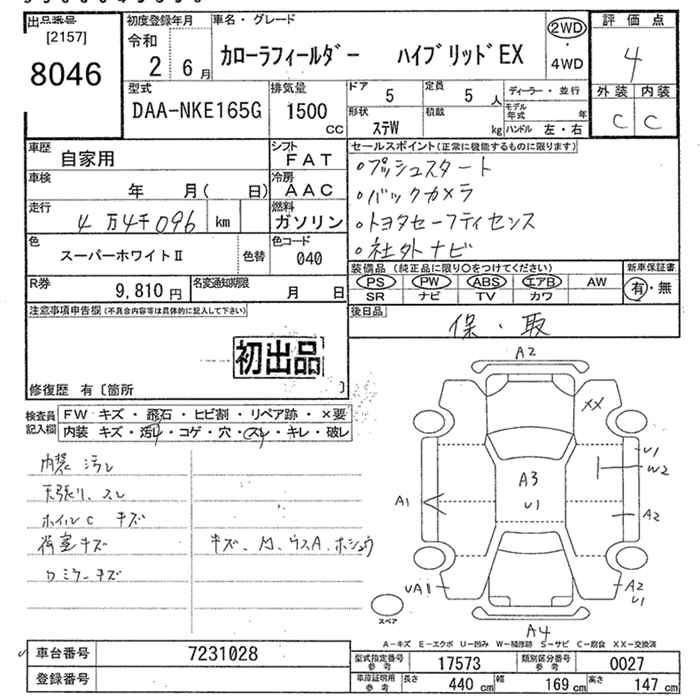 出品番号
[2157]
8046
初度登録年月
令和
2 6月
車名・グレード
カローラフィールダー ハイブリッドEX
2WD
・
4WD
評価点
4
外装 内装
C C
型式
DAA-NKE165G
排気量
1500
CC
ドア
5
定員
5 人
形状
ステW
積載
kg
ディーラー・並行
モデル年式 年
ハンドル 左・右
車歴
自家用
シフト
FAT
車検
年 月( 日)
冷房
AAC
走行
4万4千096 km
燃料
ガソリン
色
スーパーホワイトⅡ
色替
色コード
040
R券
9,810円
名変通知期限
月 日
セールスポイント(正常に機能するものに限ります)
・プッシュスタート
・バックカメラ
・トヨタセーフティセンス
・社外ナビ
装備品 (純正品に限り○をつけてください)
PS PW ABS エアB AW
SR ナビ TV カワ
新車保証書
有・無
後日品
保・取
注意事項申告欄(不具合内容等は具体的に記入して下さい)
初出品
修復歴 有〔箇所 〕
検査員記入欄
FW キズ・飛石・ヒビ割・リペア跡・×要
内装 キズ・汚レ・コゲ・穴・スレ・キレ・破レ
内装 汚レ
天張り、スレ
ホイルC キズ
荷室キズ
キズ、凹、ウスA、ホシュウ
ロミラーキズ
A2
XX
U1
W2
A3
U1
A1
A2
UA1
A2
U1
A4
スペア
A-キズ E-エクボ U-凹み W-補修跡 S-サビ C-腐食 XX-交換済
車台番号
7231028
登録番号
型式指定番号
参考
17573
類別区分番号
参考
0027
車庫証明用
参考
長さ
440 cm
幅
169 cm
高さ
147 cm